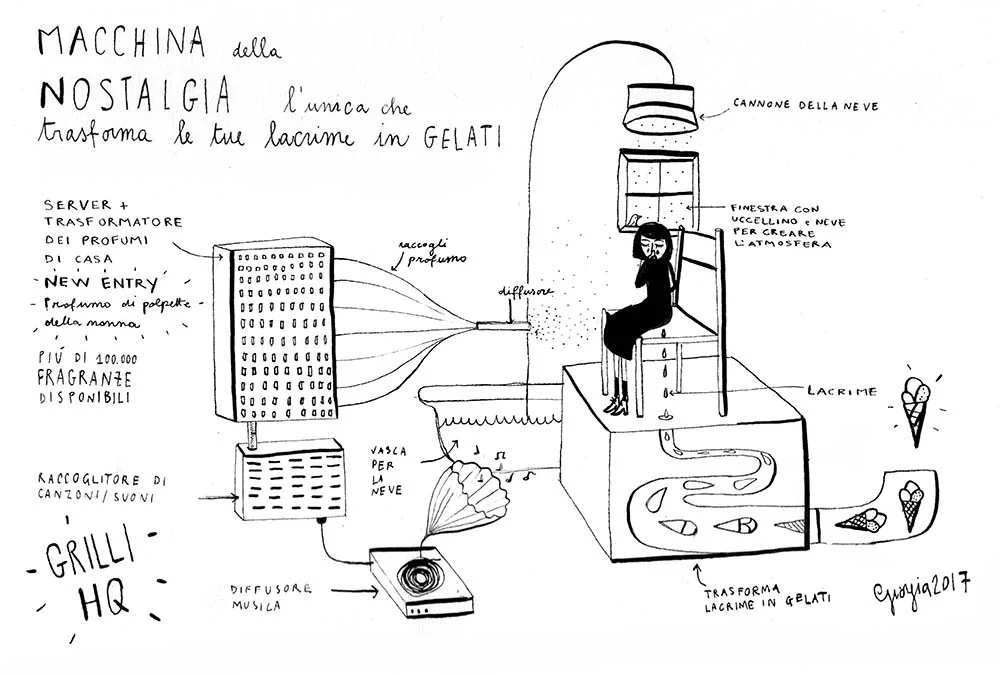 MACCHINA della
NOSTALGIA l'unica che
trasforma le tue lacrime in GELATI
CANNONE DELLA NEVE
FINESTRA CON
UCCELLINO e NEVE
PER CREARE
L'ATMOSFERA
SERVER +
TRASFORMATORE
DEI PROFUMI
DI CASA
NEW ENTRY
Profumo di polpette
della nonna
PIÚ DI 100.000
FRAGRANZE
DISPONIBILI
raccogli
profumo
diffusore
LACRIME
VASCA
PER
LA
NEVE
RACCOGLITORE DI
CANZONI/SUONI
GRILLI
HQ
DIFFUSORE
MUSICA
TRASFORMA
LACRIME IN GELATI
Giorgia 2017